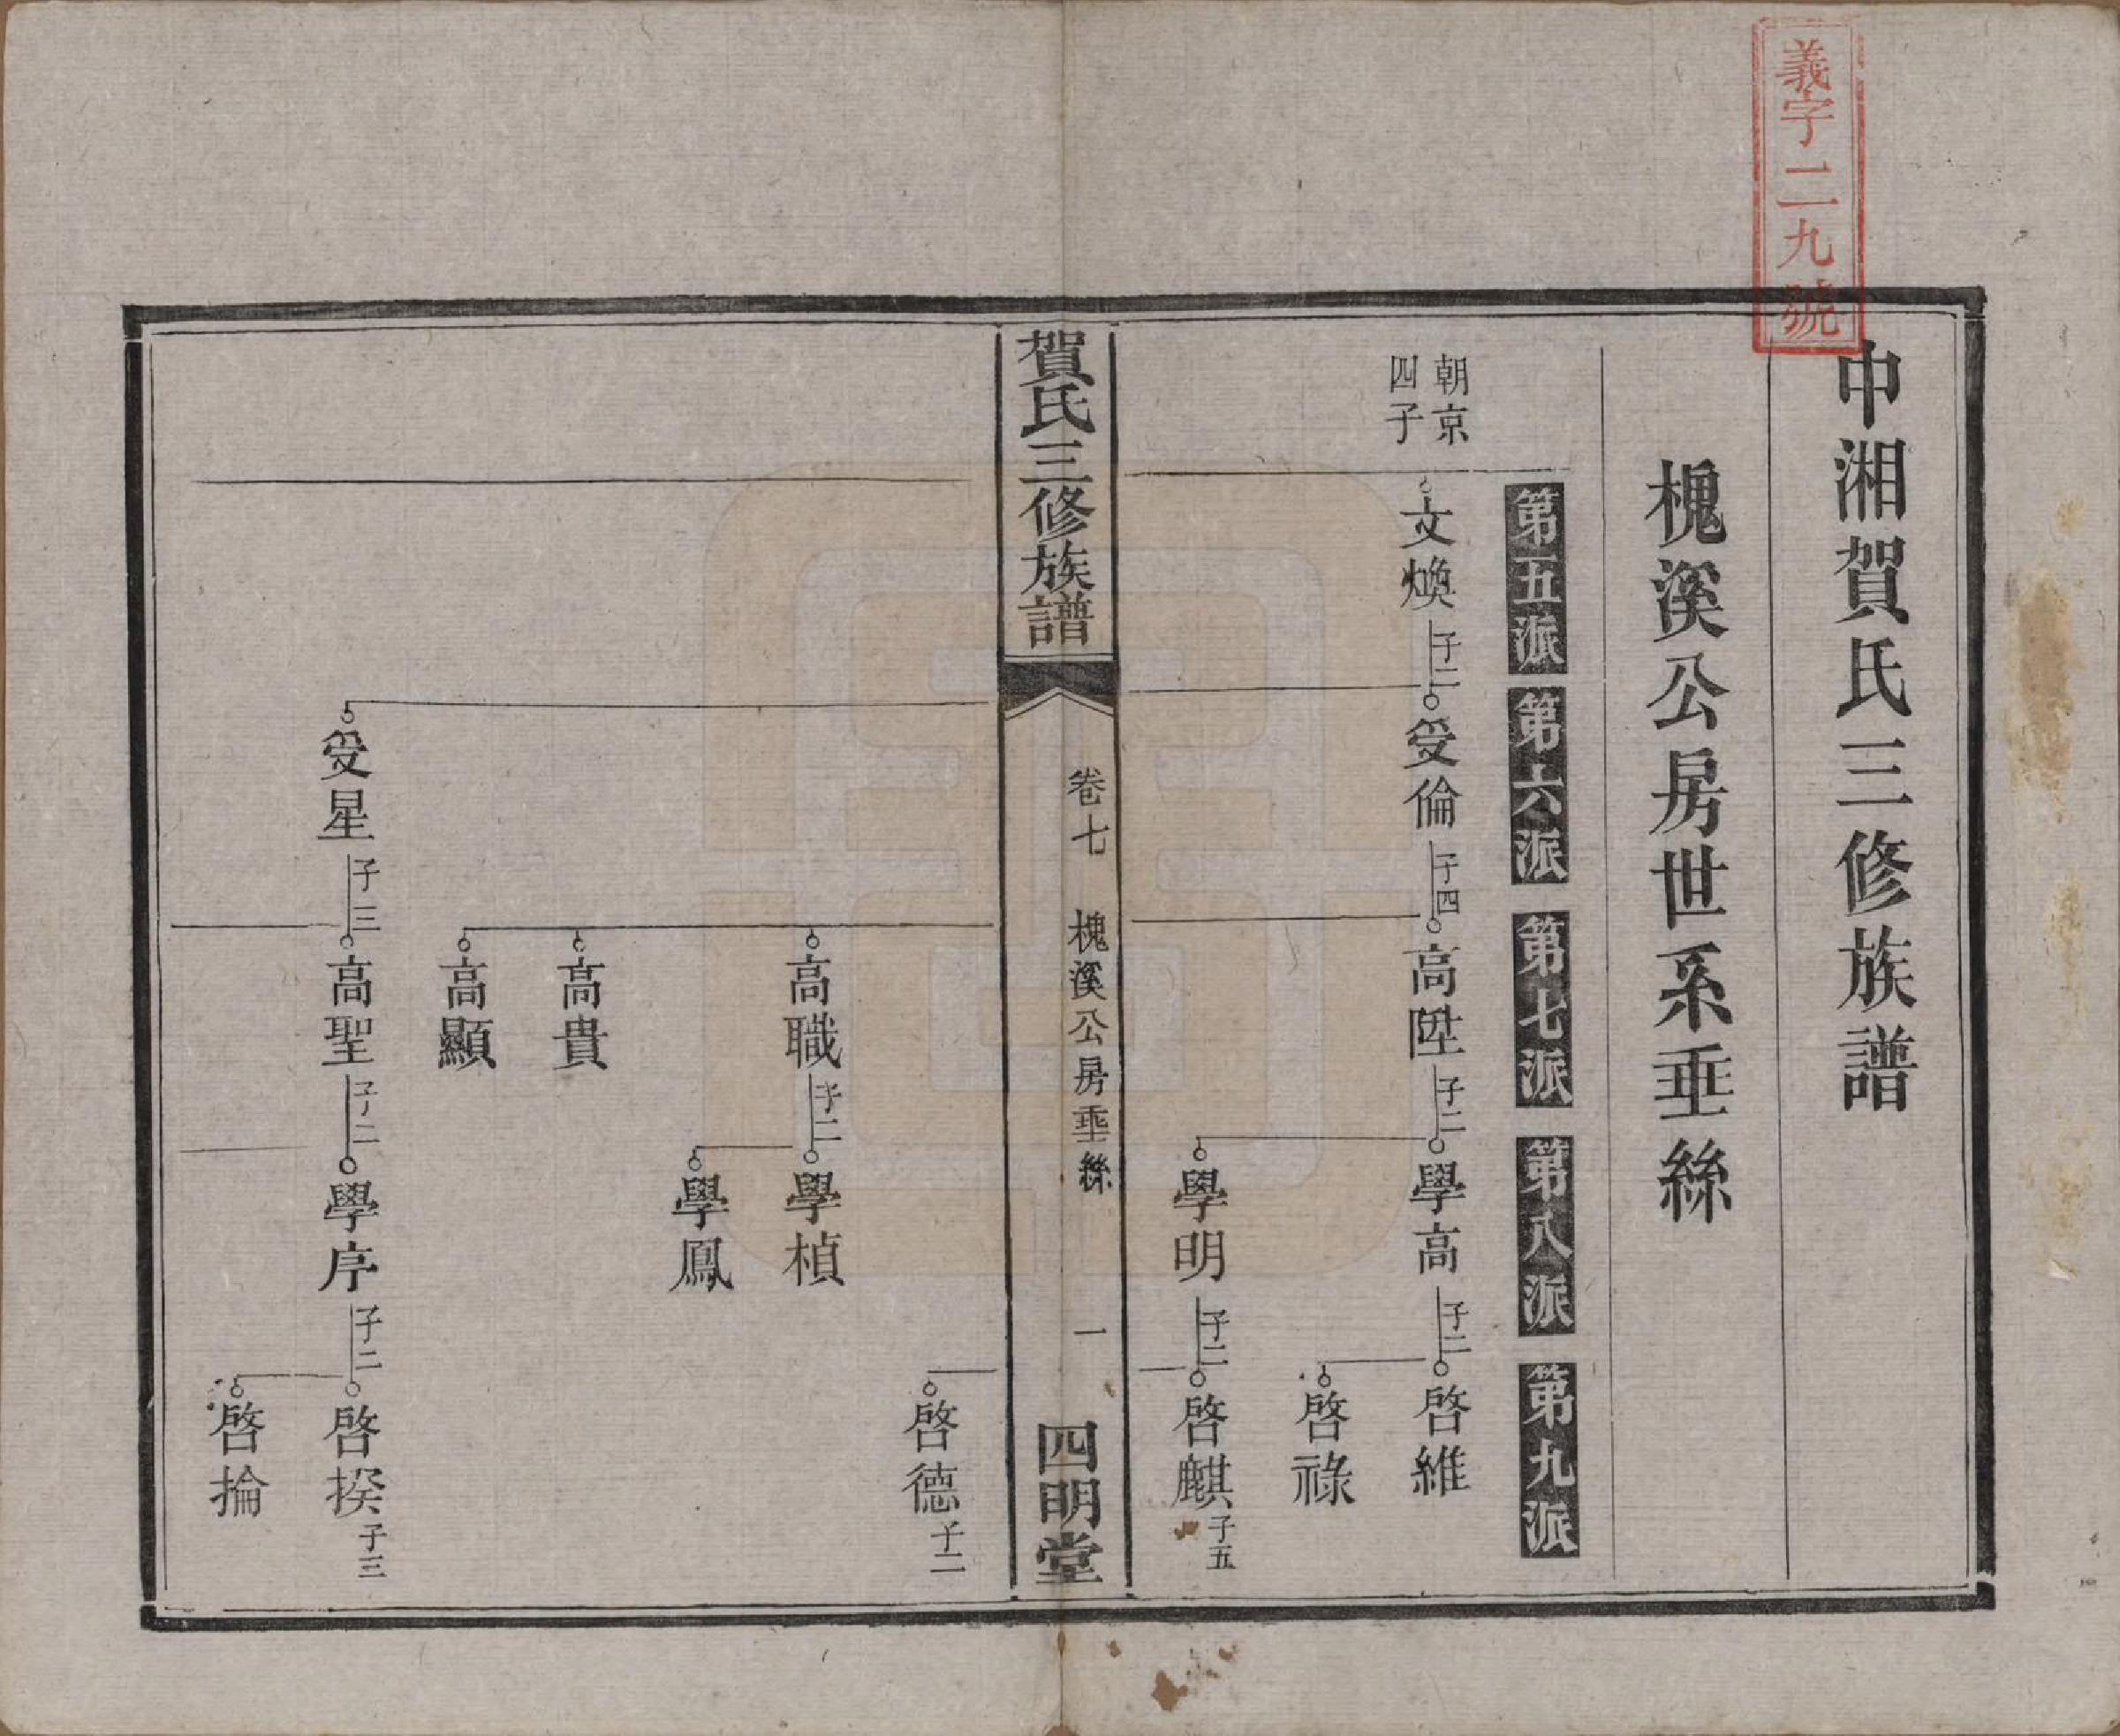 義字二九號
中湘賀氏三修族譜
槐溪公房世系垂絲
第五派
第六派
第七派
第八派
第九派
朝京
四子
文煥
子二
受倫
子四
高陞
子二
學高
子二
啓維
啓祿
學明
子二
啓麒
子五
賀氏三修族譜
卷七
槐溪公房垂絲
一
四明堂
啓德
子二
高職
子二
學楨
學鳳
高貴
高顯
受星
子三
高聖
子二
學序
子二
啓揆
子三
啓掄